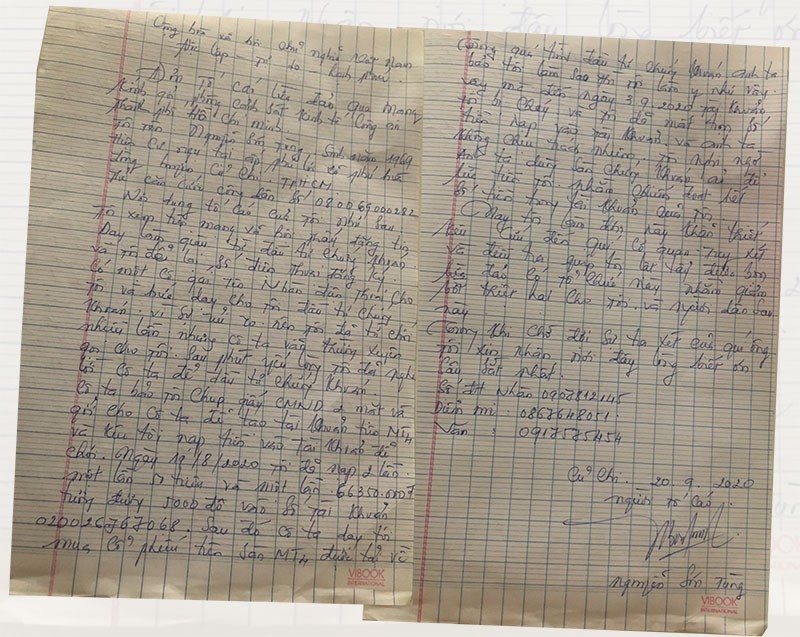 Cộng hòa xã hội chủ nghĩa Việt Nam
Độc lập – tự do – hạnh phúc
Đơn Tố cáo lừa đảo qua mạng
Kính gởi phòng cảnh sát kinh tế Công an
thành phố Hồ Chí Minh
Tôi tên Nguyễn Sơn Tùng Sinh năm 1969
Hiện cư ngụ tại ấp phú lợi xã phú hòa
đông huyện Củ Chi TPHCM
Thẻ căn cước công dân số 080069000282
Nội dung tố cáo của tôi như sau
Tôi xem trên mạng và tôi thấy đăng tin
Dạy làm giàu từ đầu tư chứng khoán
và tôi để lại số điện thoại đăng ký.
Có một cô gái tên Nhàn điện thoại cho
tôi và dạy cho tôi đầu tư chứng
khoán vì sợ rủi ro nên tôi đã từ chối
nhiều lần nhưng cô ta vẫn thường xuyên
gọi cho tôi. Sau phút yếu lòng tôi đã nghe
lời cô ta để đầu tư chứng khoán.
Cô ta bảo tôi chụp giấy CMND 2 mặt và
gởi cho cô ta để tạo tài khoản trên MT4
và kêu tôi nạp tiền vào tài khoản để
chơi. ngày 19/8/2020 tôi đã nạp 2 lần
một lần triệu và một lần 66350.000
tương đương 5000 đô vào số tài khoản
020026767068. Sau đó cô ta dạy tôi
mua cổ phiếu trên sàn MT4
Trong quá trình đầu tư chứng khoán anh ta
bảo tôi làm sao thì tôi làm y như vậy.
vậy mà đến ngày 3.9.2020 tài khoản
tôi bị cháy và tôi đã mất trọn số
tiền nạp vào tài khoản và anh ta
không chịu trách nhiệm, tôi nghi ngờ
Anh ta dùng sàn chứng khoán ảo để
lừa tiền tôi nhằm chiếm đoạt hết
số tiền trong tài khoản của tôi
Nay tôi làm đơn này khẩn thiết
kêu cứu đến quý cơ quan truy xét
và điều tra giúp tôi lật tẩy được bọn
lừa đảo có tổ chức này nhằm giảm
bớt thiệt hại cho tôi và người dân sau
này
Trong khi chờ đợi sự tra xét của quý ông
Tôi xin nhận nơi đây lòng biết ơn
sâu sắt nhất.
Số đt Nhàn 0908812145
Diễm mi : 0867648051
Văn : 0917575454
Củ Chi. 20.9.2020
người tố cáo
Nguyễn Sơn Tùng
VIBOOK
INTERNATIONAL
VIBOOK
INTERNATIONAL